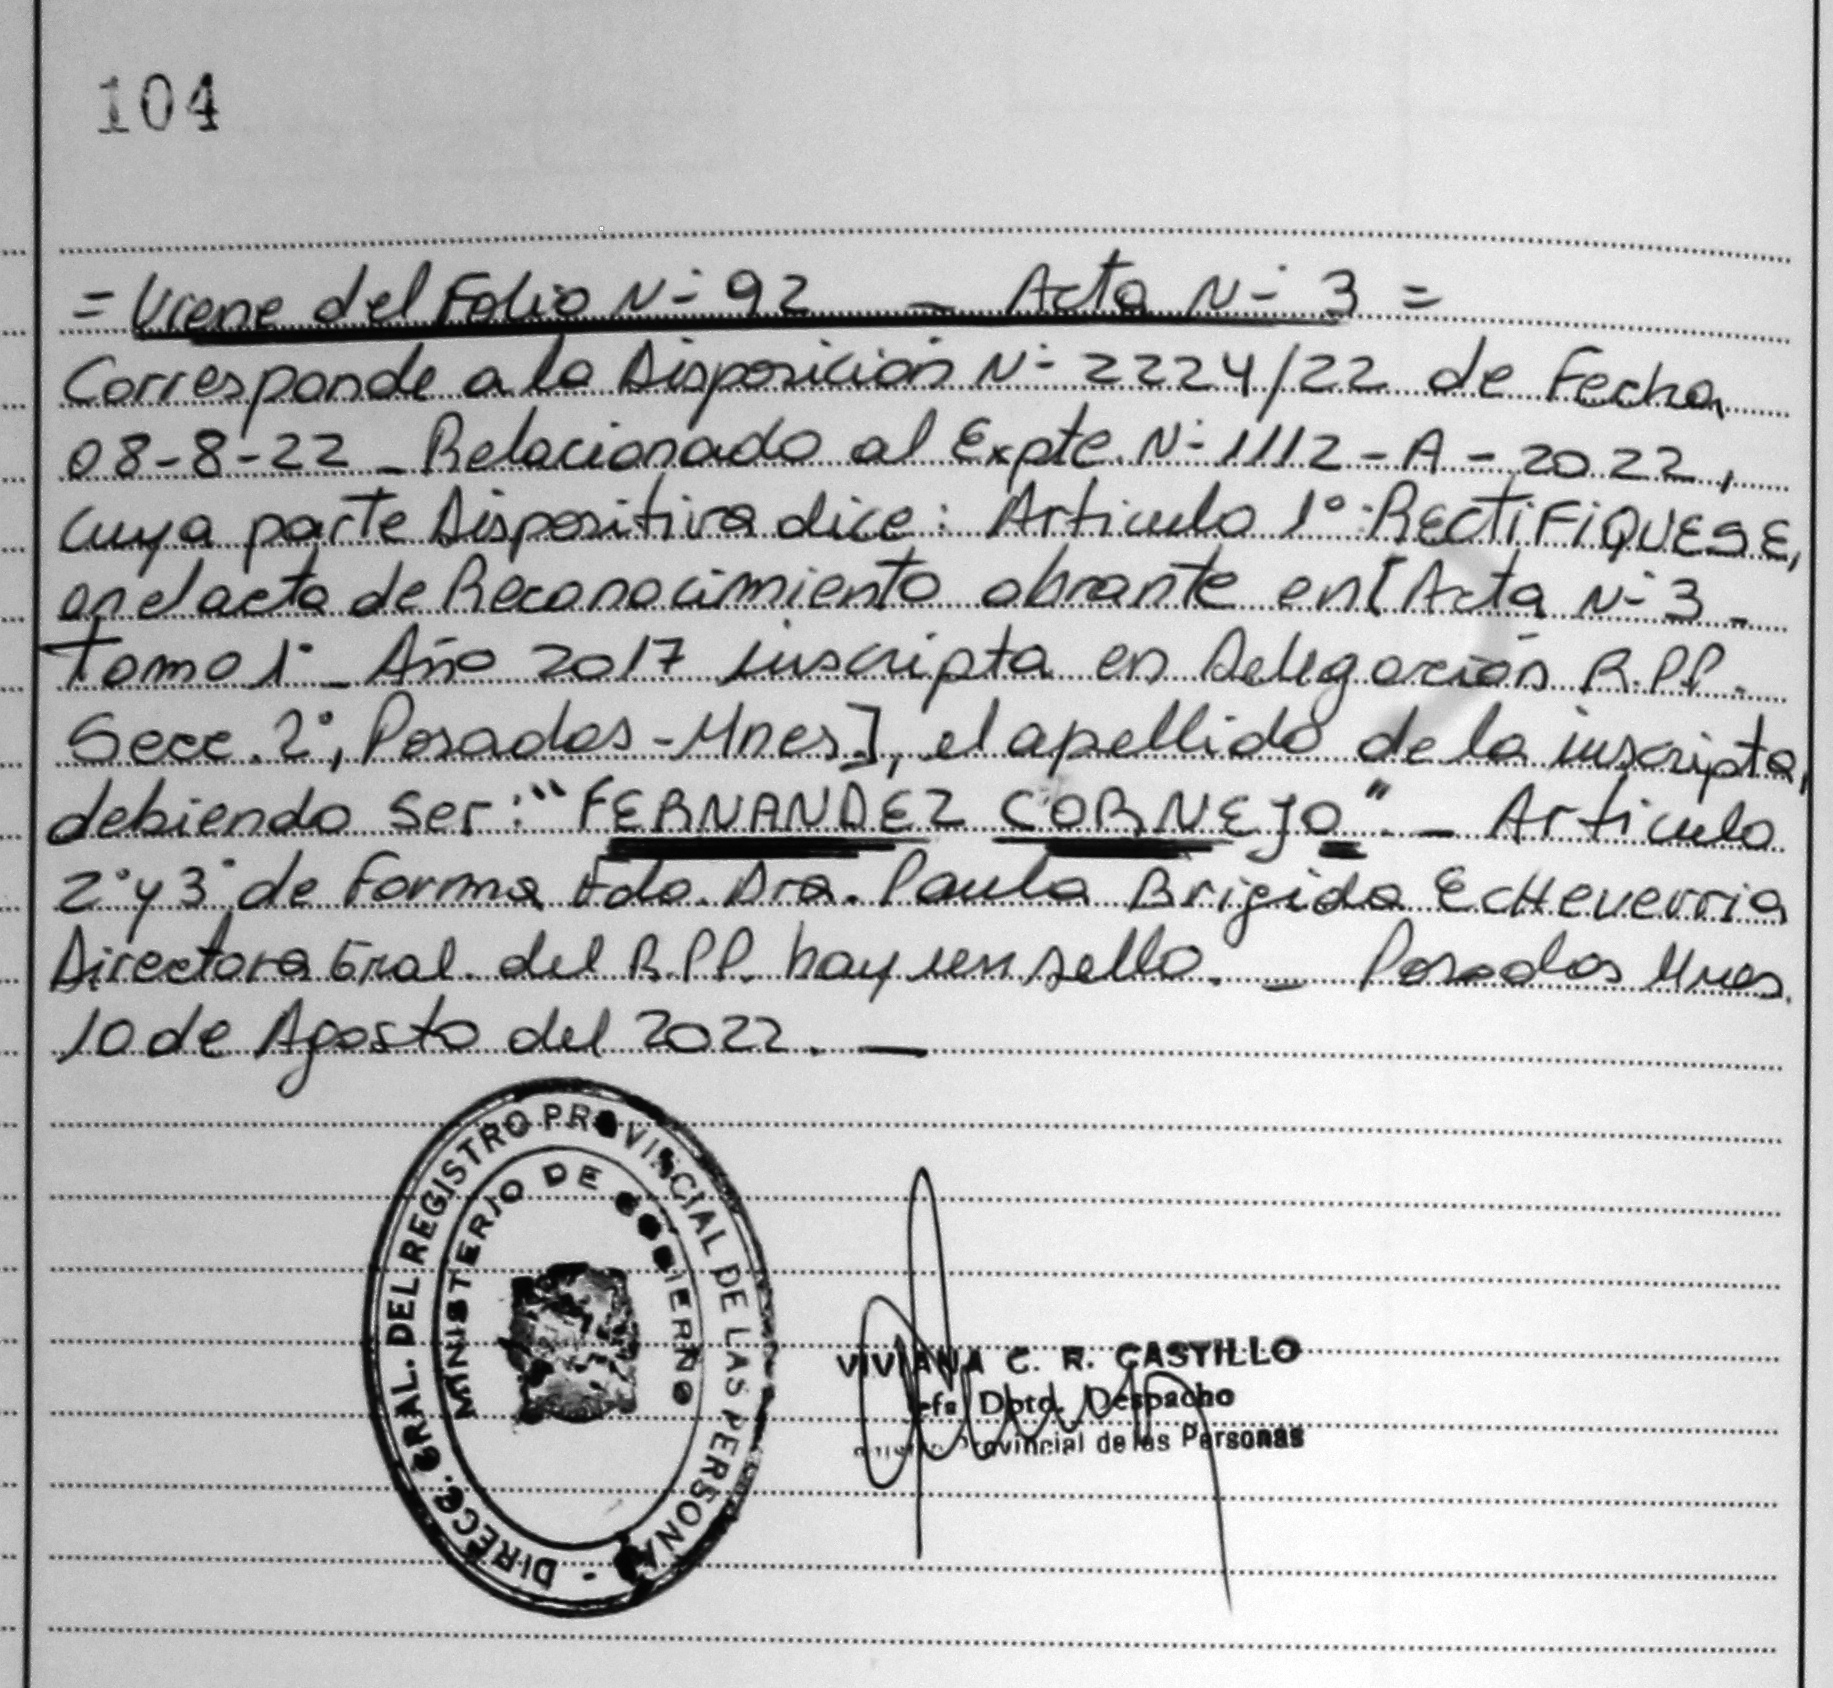 104
= Viene del Folio N- 92 _ Acta N- 3 =
Corresponde a la Disposición N- 2224/22 de Fecha
08-8-22 _ Relacionado al Expte. N- 1112-A-2022,
cuya parte Dispositiva dice: Articulo 1°: RECTIFIQUESE,
en el acta de Reconocimiento obrante en [Acta N- 3 _
Tomo 1° _ Año 2017 inscripta en Delegación R.P.P.
Secc. 2°, Posadas-Mnes], el apellido de la inscripta,
debiendo ser: "FERNANDEZ CORNEJO". _ Articulo
2° y 3° de Forma Fdo. Dra. Paula Brigida EcHeverria
Directora Gral. del R.P.P. hay un sello. _ Posadas Mnes.
10 de Agosto del 2022. _
DIRECC. GRAL. DEL REGISTRO PROVINCIAL DE LAS PERSONAS -
MINISTERIO DE GOBIERNO
VIVIANA C. R. CASTILLO
Jefa Dpto. Despacho
Provincial de las Personas